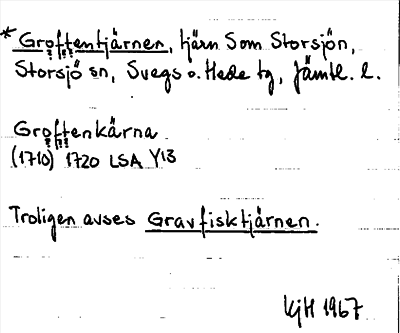 * Groftentjärnen, tjärn Som Storsjön,
Storsjö sn, Svegs o. Hede tg, Jämtl. l.
Groftenkärna
(1710) 1720 LSA Y13
Troligen avses Gravfisktjärnen.
KjH 1967